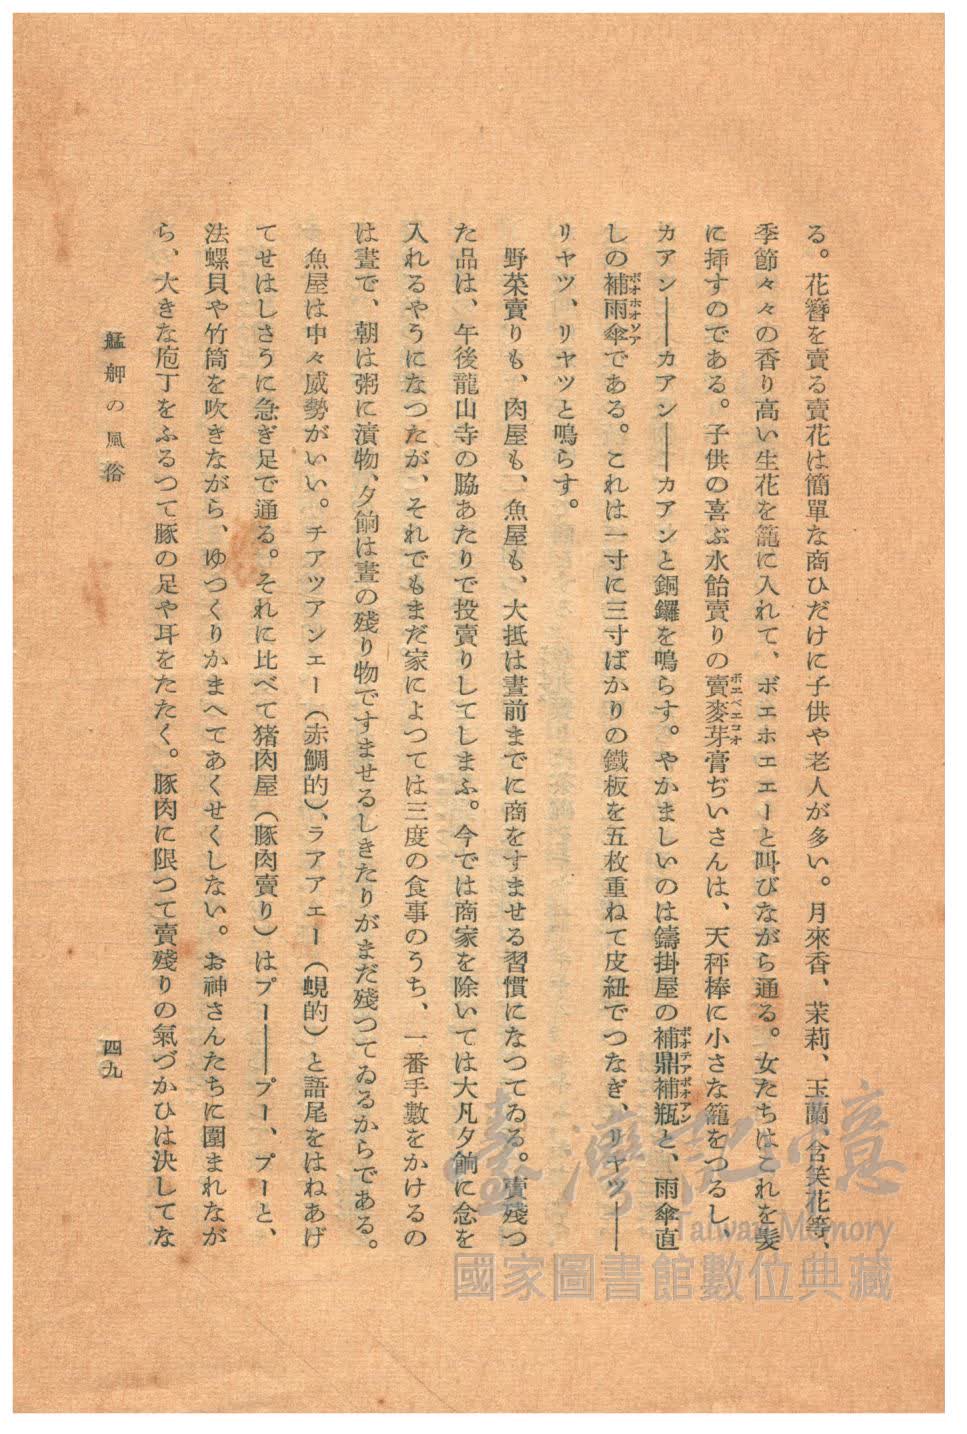 る。花簪を賣る賣花は簡單な商ひだけに子供や老人が多い。月來香、茉莉、玉蘭、含笑花等、
季節々々の香り高い生花を籠に入れて、ボエホエエーと叫びながら通る。女たちはこれを髮
に揷すのである。子供の喜ぶ水飴賣りの賣麥芽膏ぢいさんは、天秤棒に小さな籠をつるし、
ボエベエコオ
カアン――カアン――カアンと銅鑼を鳴らす。やかましいのは鑄掛屋の補鼎補瓶と、雨傘直
ポオテアポオアン
しの補雨傘である。これは一寸に三寸ばかりの鐵板を五枚重ねて皮紐でつなぎ、リヤツ――
ポオホオソア
リヤツ、リヤツと鳴らす。
野菜賣りも、肉屋も、魚屋も、大抵は晝前までに商をすませる習慣になつてゐる。賣殘つ
た品は、午後龍山寺の脇あたりで投賣りしてしまふ。今では商家を除いては大凡夕餉に念を
入れるやうになつたが、それでもまだ家によつては三度の食事のうち、一番手數をかけるの
は晝で、朝は粥に漬物、夕餉は晝の殘り物ですませるしきたりがまだ殘つてゐるからである。
魚屋は中々威勢がいい。チアツアンエー（赤鯛的）、ラアアエー（蜆的）と語尾をはねあげ
てせはしさうに急ぎ足で通る。それに比べて猪肉屋（豚肉賣り）はプー――プー、プーと、
法螺貝や竹筒を吹きながら、ゆつくりかまへてあくせくしない。お神さんたちに圍まれなが
ら、大きな庖丁をふるつて豚の足や耳をたたく。豚肉に限つて賣殘りの氣づかひは決してな
艋舺の風俗
四九
臺灣記憶
Taiwan Memory
國家圖書館數位典藏